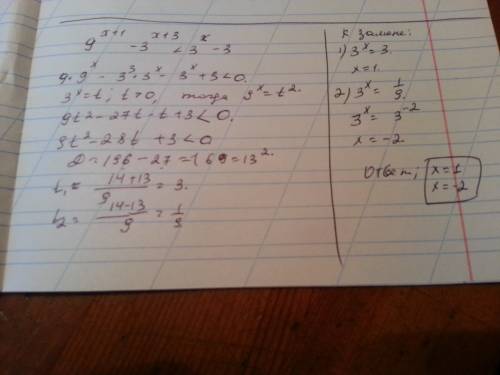 9^(x+1) - 3^(x+3) < 3^x - 3
9·9^x - 3³·3^x - 3^x + 3 < 0.
3^x = t; t > 0, тогда 9^x = t².
9t² - 27t - t + 3 < 0.
9t² - 28t + 3 < 0
D = 196 - 27 = 169 = 13².
t₁ = (14+13)/9 = 3.
t₂ = (14-13)/9 = 1/9
К замене:
1) 3^x = 3.
x = 1.
2) 3^x = 1/9.
3^x = 3^(-2)
x = -2.
Ответ: x = 1
x = -2